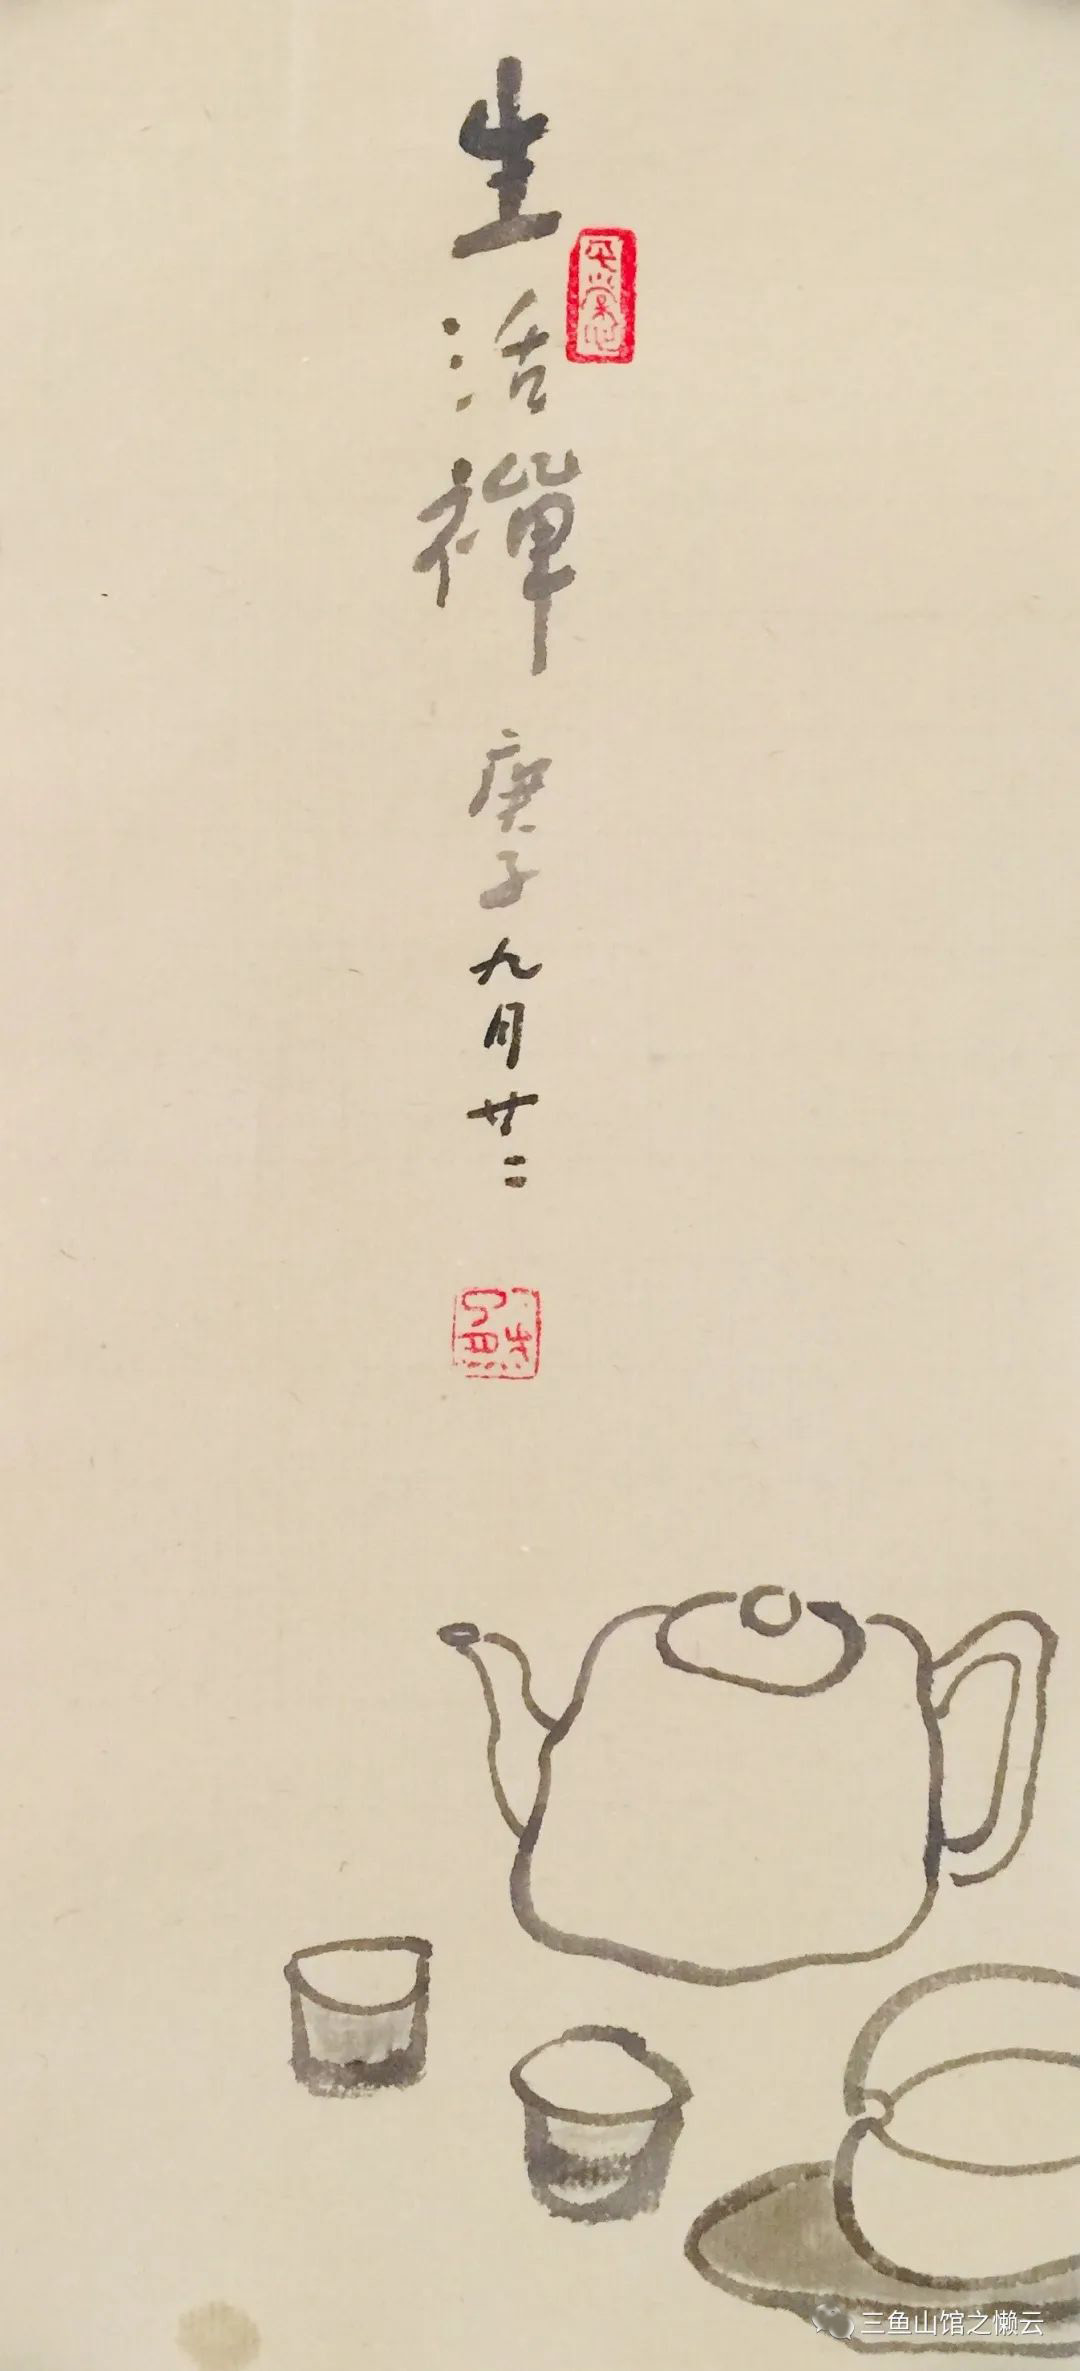 生活禪
庚子九月廿二
平常心
三鱼山馆之懒云